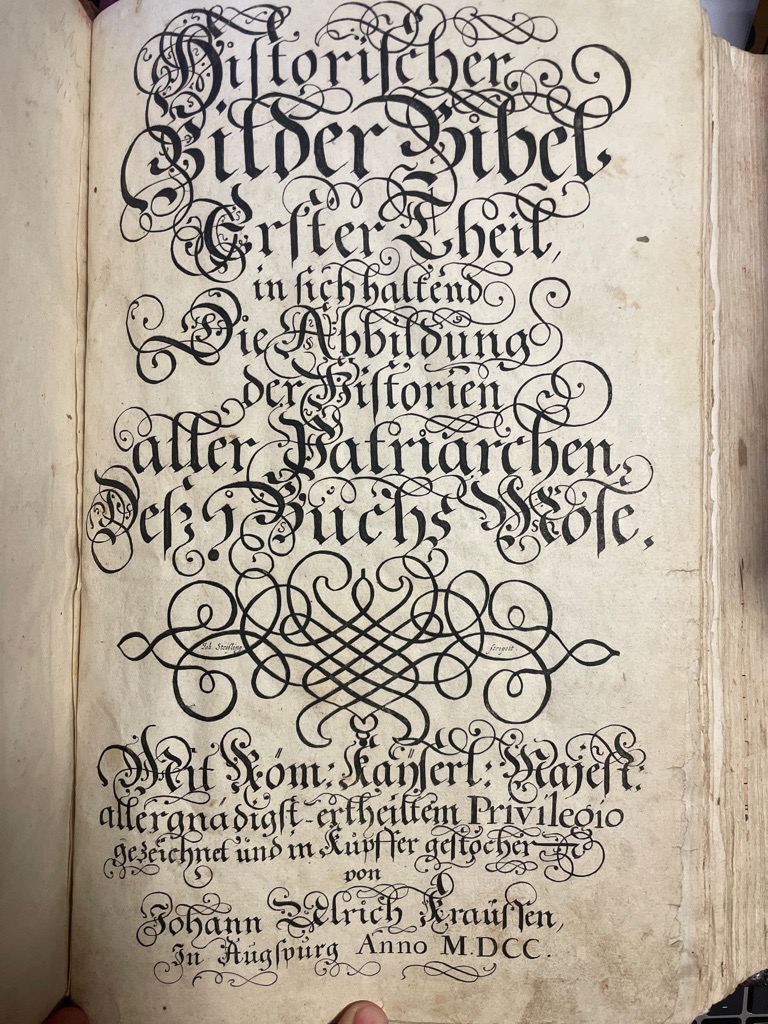 Historischer
Bilder Bibel,
Erster Theil,
in sich haltend
Die Abbildung
der Historien
aller Patriarchen,
Deß j Buchs Mose.
Joh. scripsit.
Mit Röm: Kaÿserl: Majest:
allergnädigst-ertheiltem Privilegio
gezeichnet und in Kupffer gestochen
von
Johann Ulrich Kraussen,
In Augspurg Anno M.DCC.